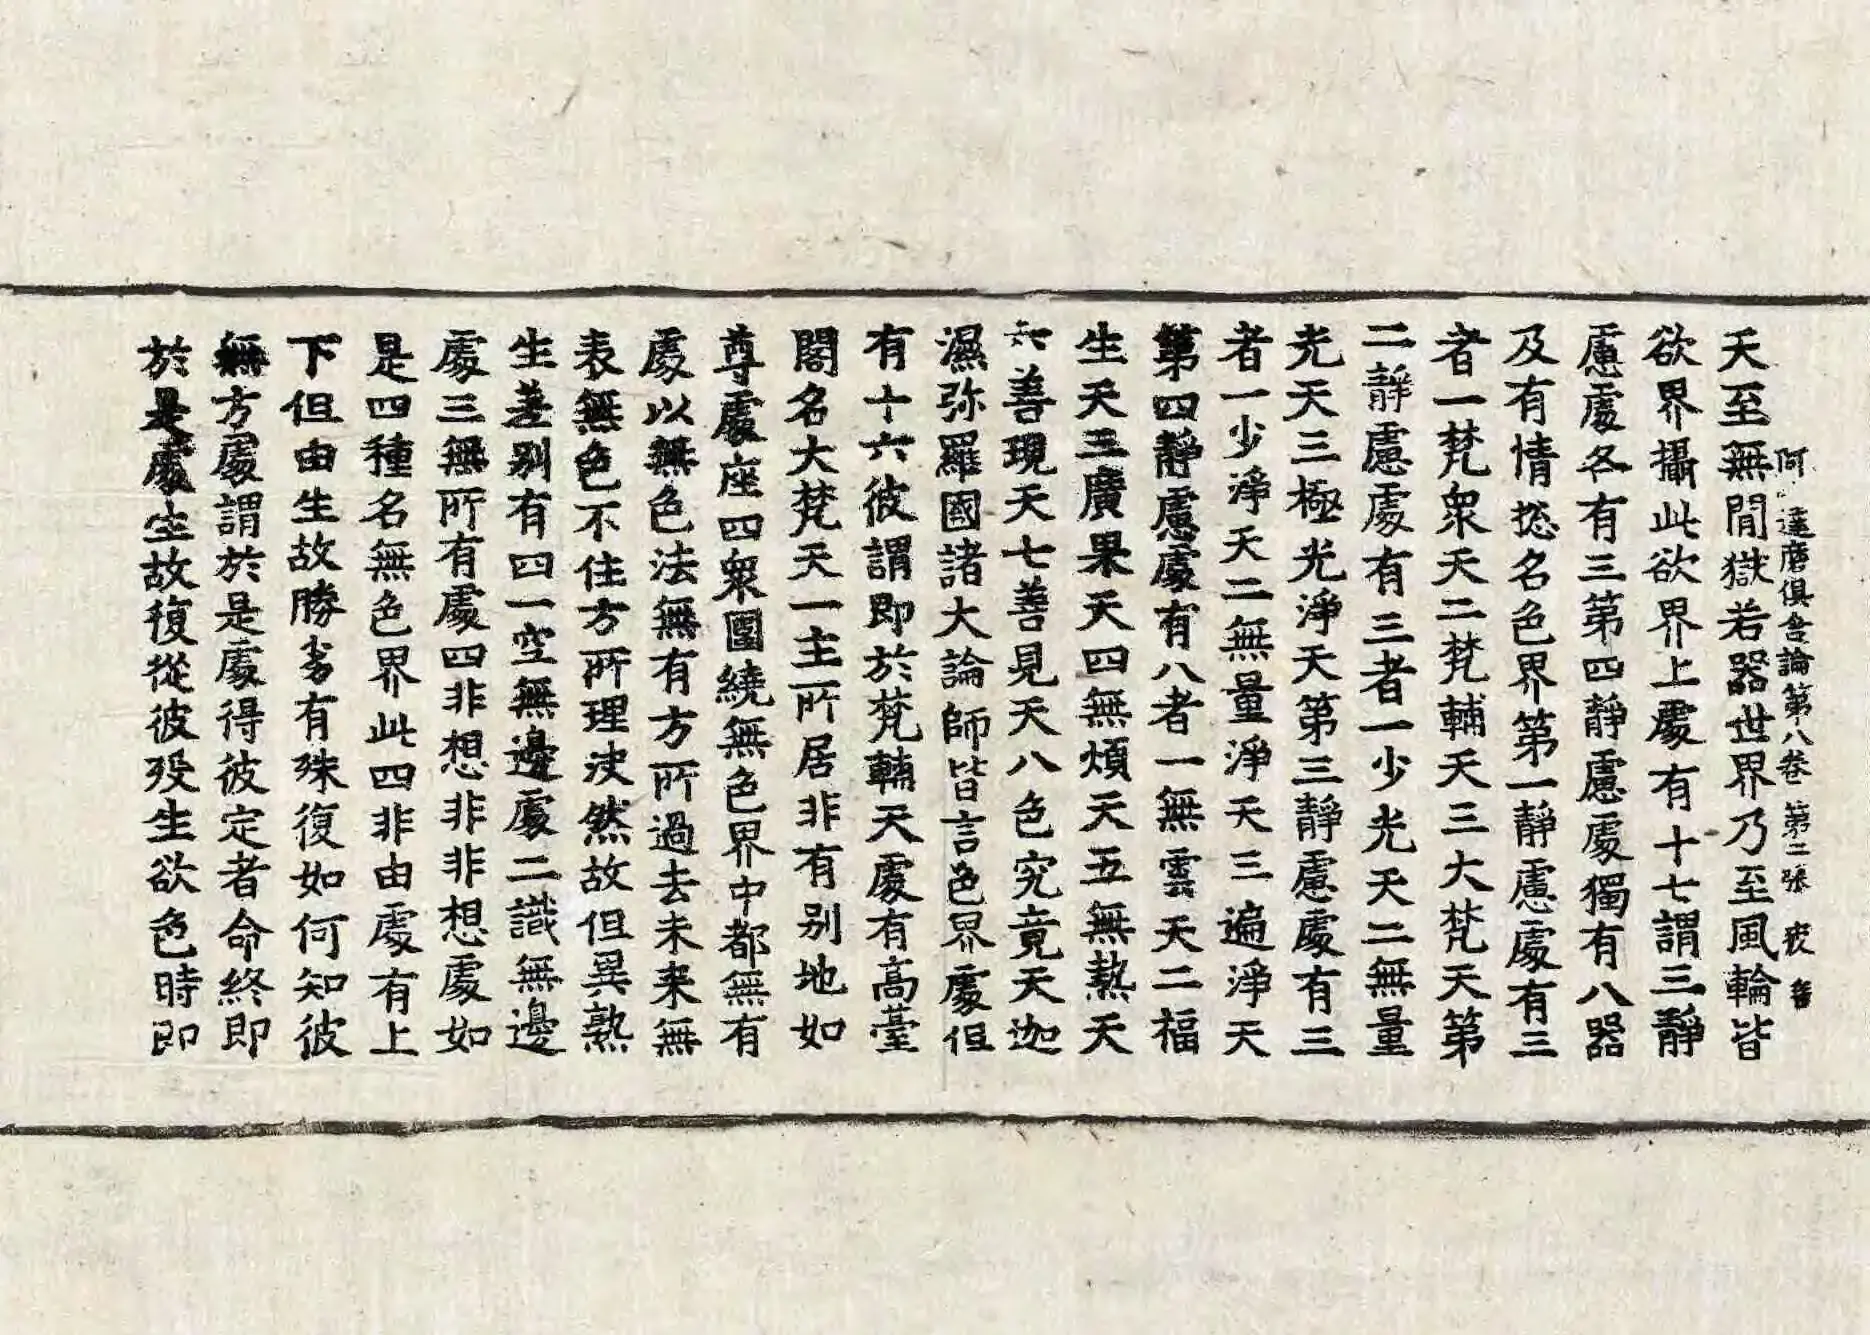 阿 達磨俱舍論第八卷 第二張
天至無間獄若器世界乃至風輪皆
欲界攝此欲界上處有十七謂三靜
慮處各有三第四靜慮處獨有八器
及有情揔名色界第一靜慮處有三
者一梵衆天二梵輔天三大梵天第
二靜慮處有三者一少光天二無量
光天三極光淨天第三靜慮處有三
者一少淨天二無量淨天三遍淨天
第四靜慮處有八者一無雲天二福
生天三廣果天四無煩天五無熱天
六善現天七善見天八色究竟天迦
濕弥羅國諸大論師皆言色界處但
有十六彼謂即於梵輔天處有高臺
閣名大梵天一主所居非有别地如
尊處座四衆圍繞無色界中都無有
處以無色法無有方所過去未来無
表無色不住方所理决然故但異熟
生差别有四一空無邊處二識無邊
處三無所有處四非想非非想處如
是四種名無色界此四非由處有上
下但由生故勝劣有殊復如何知彼
無方處謂於是處得彼定者命終即
於是處生故復從彼歿生欲色時即